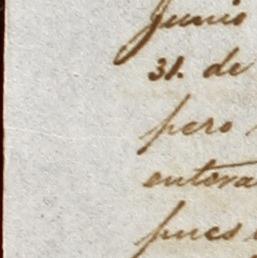 Junio
31. de
pero
entera
pues